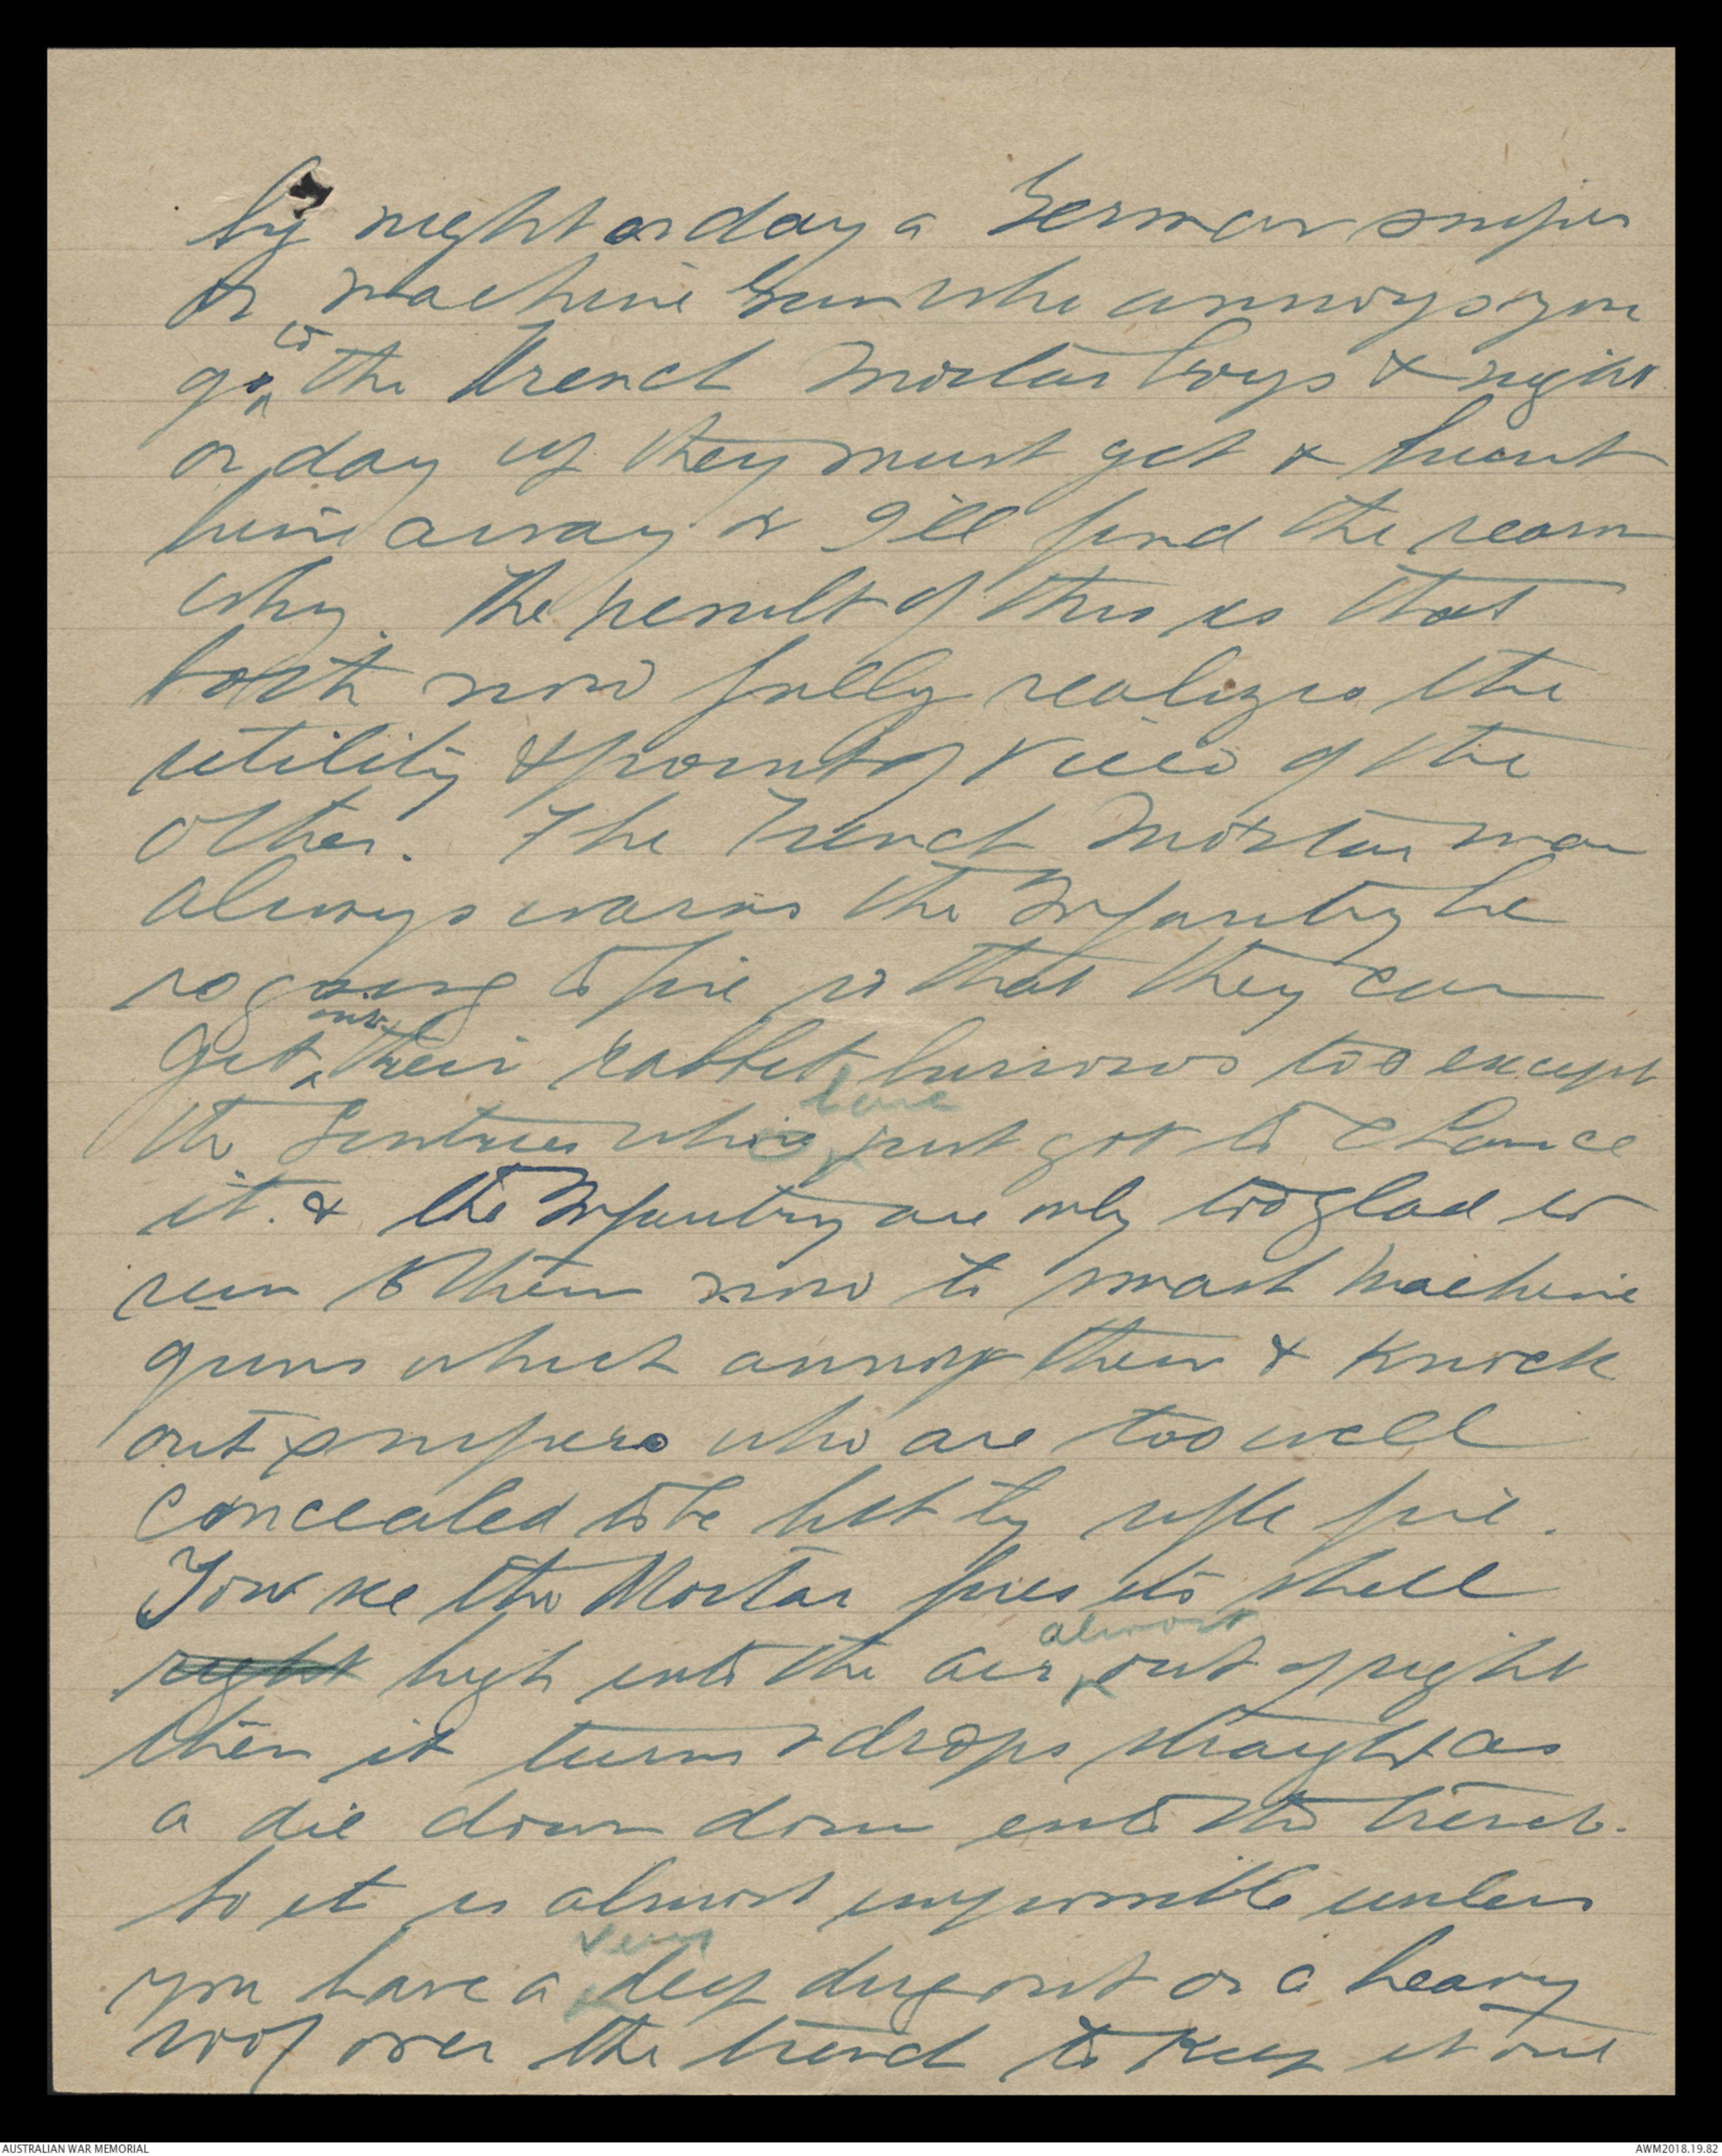 by night or day a German sniper
or machine Gun who annoys you
go to the Trench Mortar boys & night
or day up they must get & hunt
him away or I'll find the reason
why. The result of this is that
both now fully realizes the
utility & point of view of the
other. The Trench Mortar man
always warns the Infantry he
is going to fire so that they can
get into their rabbit burrows too except
the Sentries who have just got to chance
it. & the Infantry are only too glad to
run to them now to smash machine
guns which annoy them & knock
out snipers who are too well
concealed to be hit by rifle fire.
You see the Mortar fires its shell
right high into the air almost out of sight
then it turns & drops straight as
a die down down into the trench.
So it is almost impossible unless
you have a very deep dugout or a heavy
roof over the trench to keep it out
AUSTRALIAN WAR MEMORIAL
AWM2018.19.82